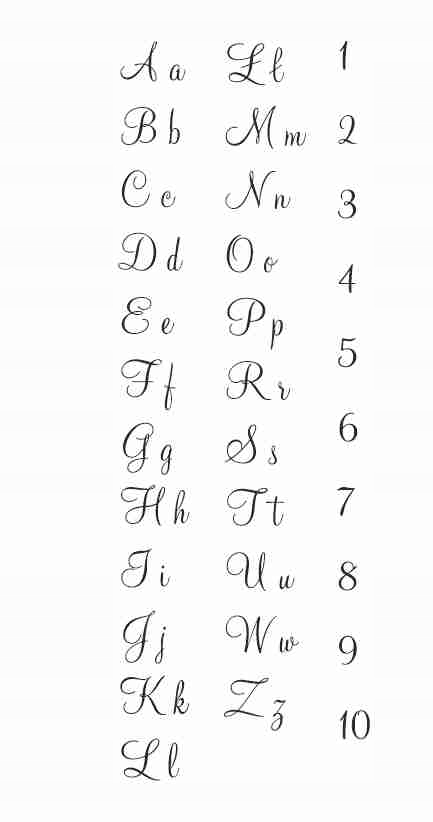 A a
B b
C c
D d
E e
F f
G g
H h
I i
J j
K k
L l
Ł ł
M m
N n
O o
P p
R r
S s
T t
U u
W w
Z z
1
2
3
4
5
6
7
8
9
10